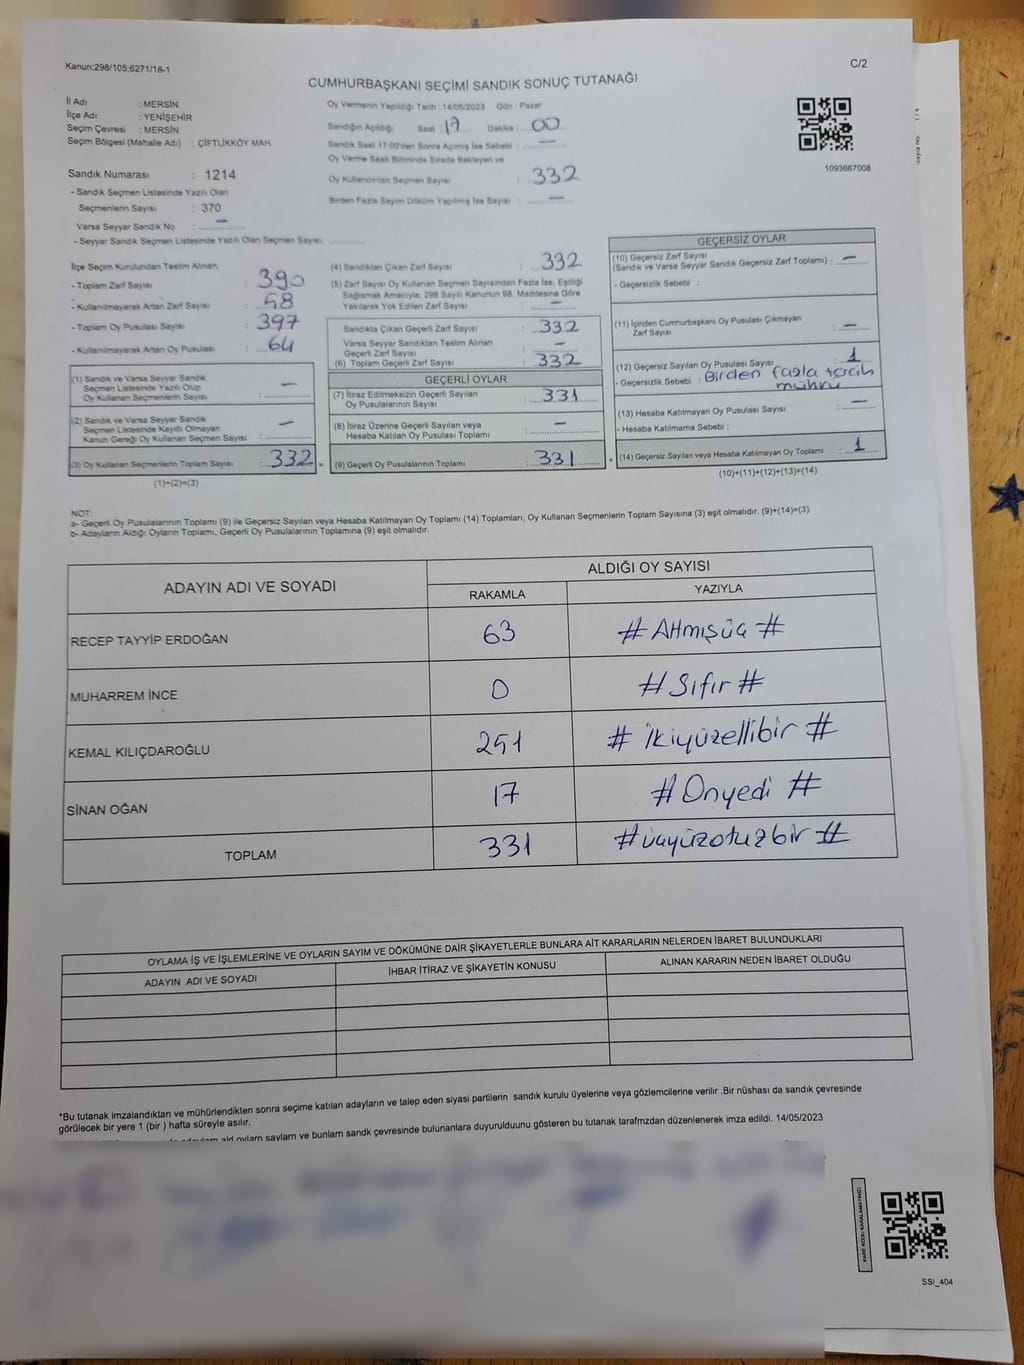 Kanun:298/105;6271/16-1
C/2
CUMHURBAŞKANI SEÇİMİ SANDIK SONUÇ TUTANAĞI
İl Adı : MERSİN
İlçe Adı : YENİŞEHİR
Seçim Çevresi : MERSİN
Seçim Bölgesi (Mahalle Adı) : ÇİFTLİKKÖY MAH.
Sandık Numarası : 1214
- Sandık Seçmen Listesinde Yazılı Olan
Seçmenlerin Sayısı : 370
Varsa Seyyar Sandık No : —
- Seyyar Sandık Seçmen Listesinde Yazılı Olan Seçmen Sayısı:
Oy Vermenin Yapıldığı Tarih : 14/05/2023 Gün : Pazar
Sandığın Açıldığı Saat : 17 Dakika : 00
Sandık Saat 17:00'den Sonra Açılmış İse Sebebi : —
Oy Verme Saati Bitiminde Sırada Bekleyen ve
Oy Kullandırılan Seçmen Sayısı : 332
Birden Fazla Sayım Döküm Yapılmış İse Sayısı : —
1093667008
İlçe Seçim Kurulundan Teslim Alınan;
- Toplam Zarf Sayısı : 390
- Kullanılmayarak Artan Zarf Sayısı : 58
- Toplam Oy Pusulası Sayısı : 397
- Kullanılmayarak Artan Oy Pusulası : 64
(1) Sandık ve Varsa Seyyar Sandık
Seçmen Listesinde Yazılı Olup
Oy Kullanan Seçmenlerin Sayısı : —
(2) Sandık ve Varsa Seyyar Sandık
Seçmen Listesinde Kayıtlı Olmayan
Kanun Gereği Oy Kullanan Seçmen Sayısı : —
(3) Oy Kullanan Seçmenlerin Toplam Sayısı : 332
(1)+(2)=(3)
(4) Sandıktan Çıkan Zarf Sayısı : 332
(5) Zarf Sayısı Oy Kullanan Seçmen Sayısından Fazla İse, Eşitliği
Sağlamak Amacıyla; 298 Sayılı Kanunun 98. Maddesine Göre
Yakılarak Yok Edilen Zarf Sayısı : —
Sandıkta Çıkan Geçerli Zarf Sayısı : 332
Varsa Seyyar Sandıktan Teslim Alınan
Geçerli Zarf Sayısı : —
(6) Toplam Geçerli Zarf Sayısı : 332
GEÇERLİ OYLAR
(7) İtiraz Edilmeksizin Geçerli Sayılan
Oy Pusulalarının Sayısı : 331
(8) İtiraz Üzerine Geçerli Sayılan veya
Hesaba Katılan Oy Pusulası Toplamı : —
(9) Geçerli Oy Pusulalarının Toplamı : 331
GEÇERSİZ OYLAR
(10) Geçersiz Zarf Sayısı
(Sandık ve Varsa Seyyar Sandık Geçersiz Zarf Toplamı) : —
- Geçersizlik Sebebi :
(11) İçinden Cumhurbaşkanı Oy Pusulası Çıkmayan
Zarf Sayısı : —
(12) Geçersiz Sayılan Oy Pusulası Sayısı : 1
- Geçersizlik Sebebi : Birden fazla tercih
mührü
(13) Hesaba Katılmayan Oy Pusulası Sayısı : —
- Hesaba Katılmama Sebebi :
(14) Geçersiz Sayılan veya Hesaba Katılmayan Oy Toplamı : 1
(10)+(11)+(12)+(13)=(14)
NOT:
a- Geçerli Oy Pusulalarının Toplamı (9) ile Geçersiz Sayılan veya Hesaba Katılmayan Oy Toplamı (14) Toplamları, Oy Kullanan Seçmenlerin Toplam Sayısına (3) eşit olmalıdır. (9)+(14)=(3)
b- Adayların Aldığı Oyların Toplamı, Geçerli Oy Pusulalarının Toplamına (9) eşit olmalıdır.
ADAYIN ADI VE SOYADI
ALDIĞI OY SAYISI
RAKAMLA YAZIYLA
RECEP TAYYİP ERDOĞAN 63 # Altmışüç #
MUHARREM İNCE 0 # Sıfır #
KEMAL KILIÇDAROĞLU 251 # ikiyüzellibir #
SİNAN OĞAN 17 # Onyedi #
TOPLAM 331 # üçyüzotuzbir #
OYLAMA İŞ VE İŞLEMLERİNE VE OYLARIN SAYIM VE DÖKÜMÜNE DAİR ŞİKAYETLERLE BUNLARA AİT KARARLARIN NELERDEN İBARET BULUNDUKLARI
ADAYIN ADI VE SOYADI İHBAR İTİRAZ VE ŞİKAYETİN KONUSU ALINAN KARARIN NEDEN İBARET OLDUĞU
*Bu tutanak imzalandıktan ve mühürlendikten sonra seçime katılan adayların ve talep eden siyasi partilerin sandık kurulu üyelerine veya gözlemcilerine verilir .Bir nüshası da sandık çevresinde
görülecek bir yere 1 (bir ) hafta süreyle asılır.
oyların sayların ve bunların sandk çevresinde bulunanlara duyurulduunu gösteren bu tutanak tarafmzdan düzenlenerek imza edildi. 14/05/2023
KARE KODU KARALAMAYINIZ!
SSI_404